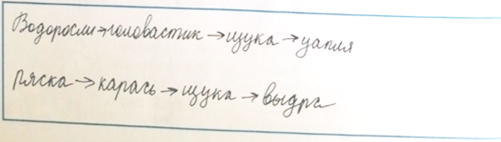 Водоросли→головастик→щука→цапля
Ряска→карась→щука→выдра